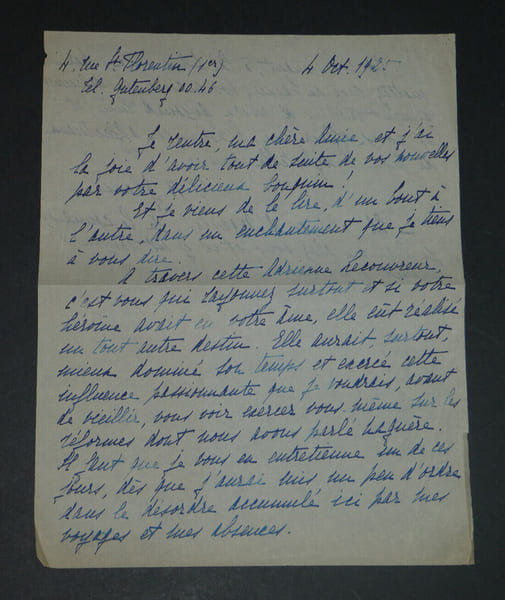 4. rue St. Florentin (1er) 4 Oct. 1925
Tél. Gutenberg 00.46
Je rentre, ma chère Amie, et j'ai
la joie d'avoir tout de suite de vos nouvelles
par votre délicieux bouquin !
Et je viens de le lire, d'un bout à
l'autre, dans un enchantement que je tiens
à vous dire.
A travers cette Adrienne Lecouvreur,
c'est vous qui rayonnez surtout et si votre
héroïne avait eu votre âme, elle eût réalisé
un tout autre destin. Elle aurait, surtout,
mieux dominé son temps et exercé cette
influence passionnante que je voudrais, avant
de vieillir, vous voir exercer vous-même sur les
réformes dont nous avons parlé naguère.
Il faut que je vous en entretienne un de ces
jours, dès que j'aurai mis un peu d'ordre
dans le désordre accumulé ici par mes
voyages et mes absences.